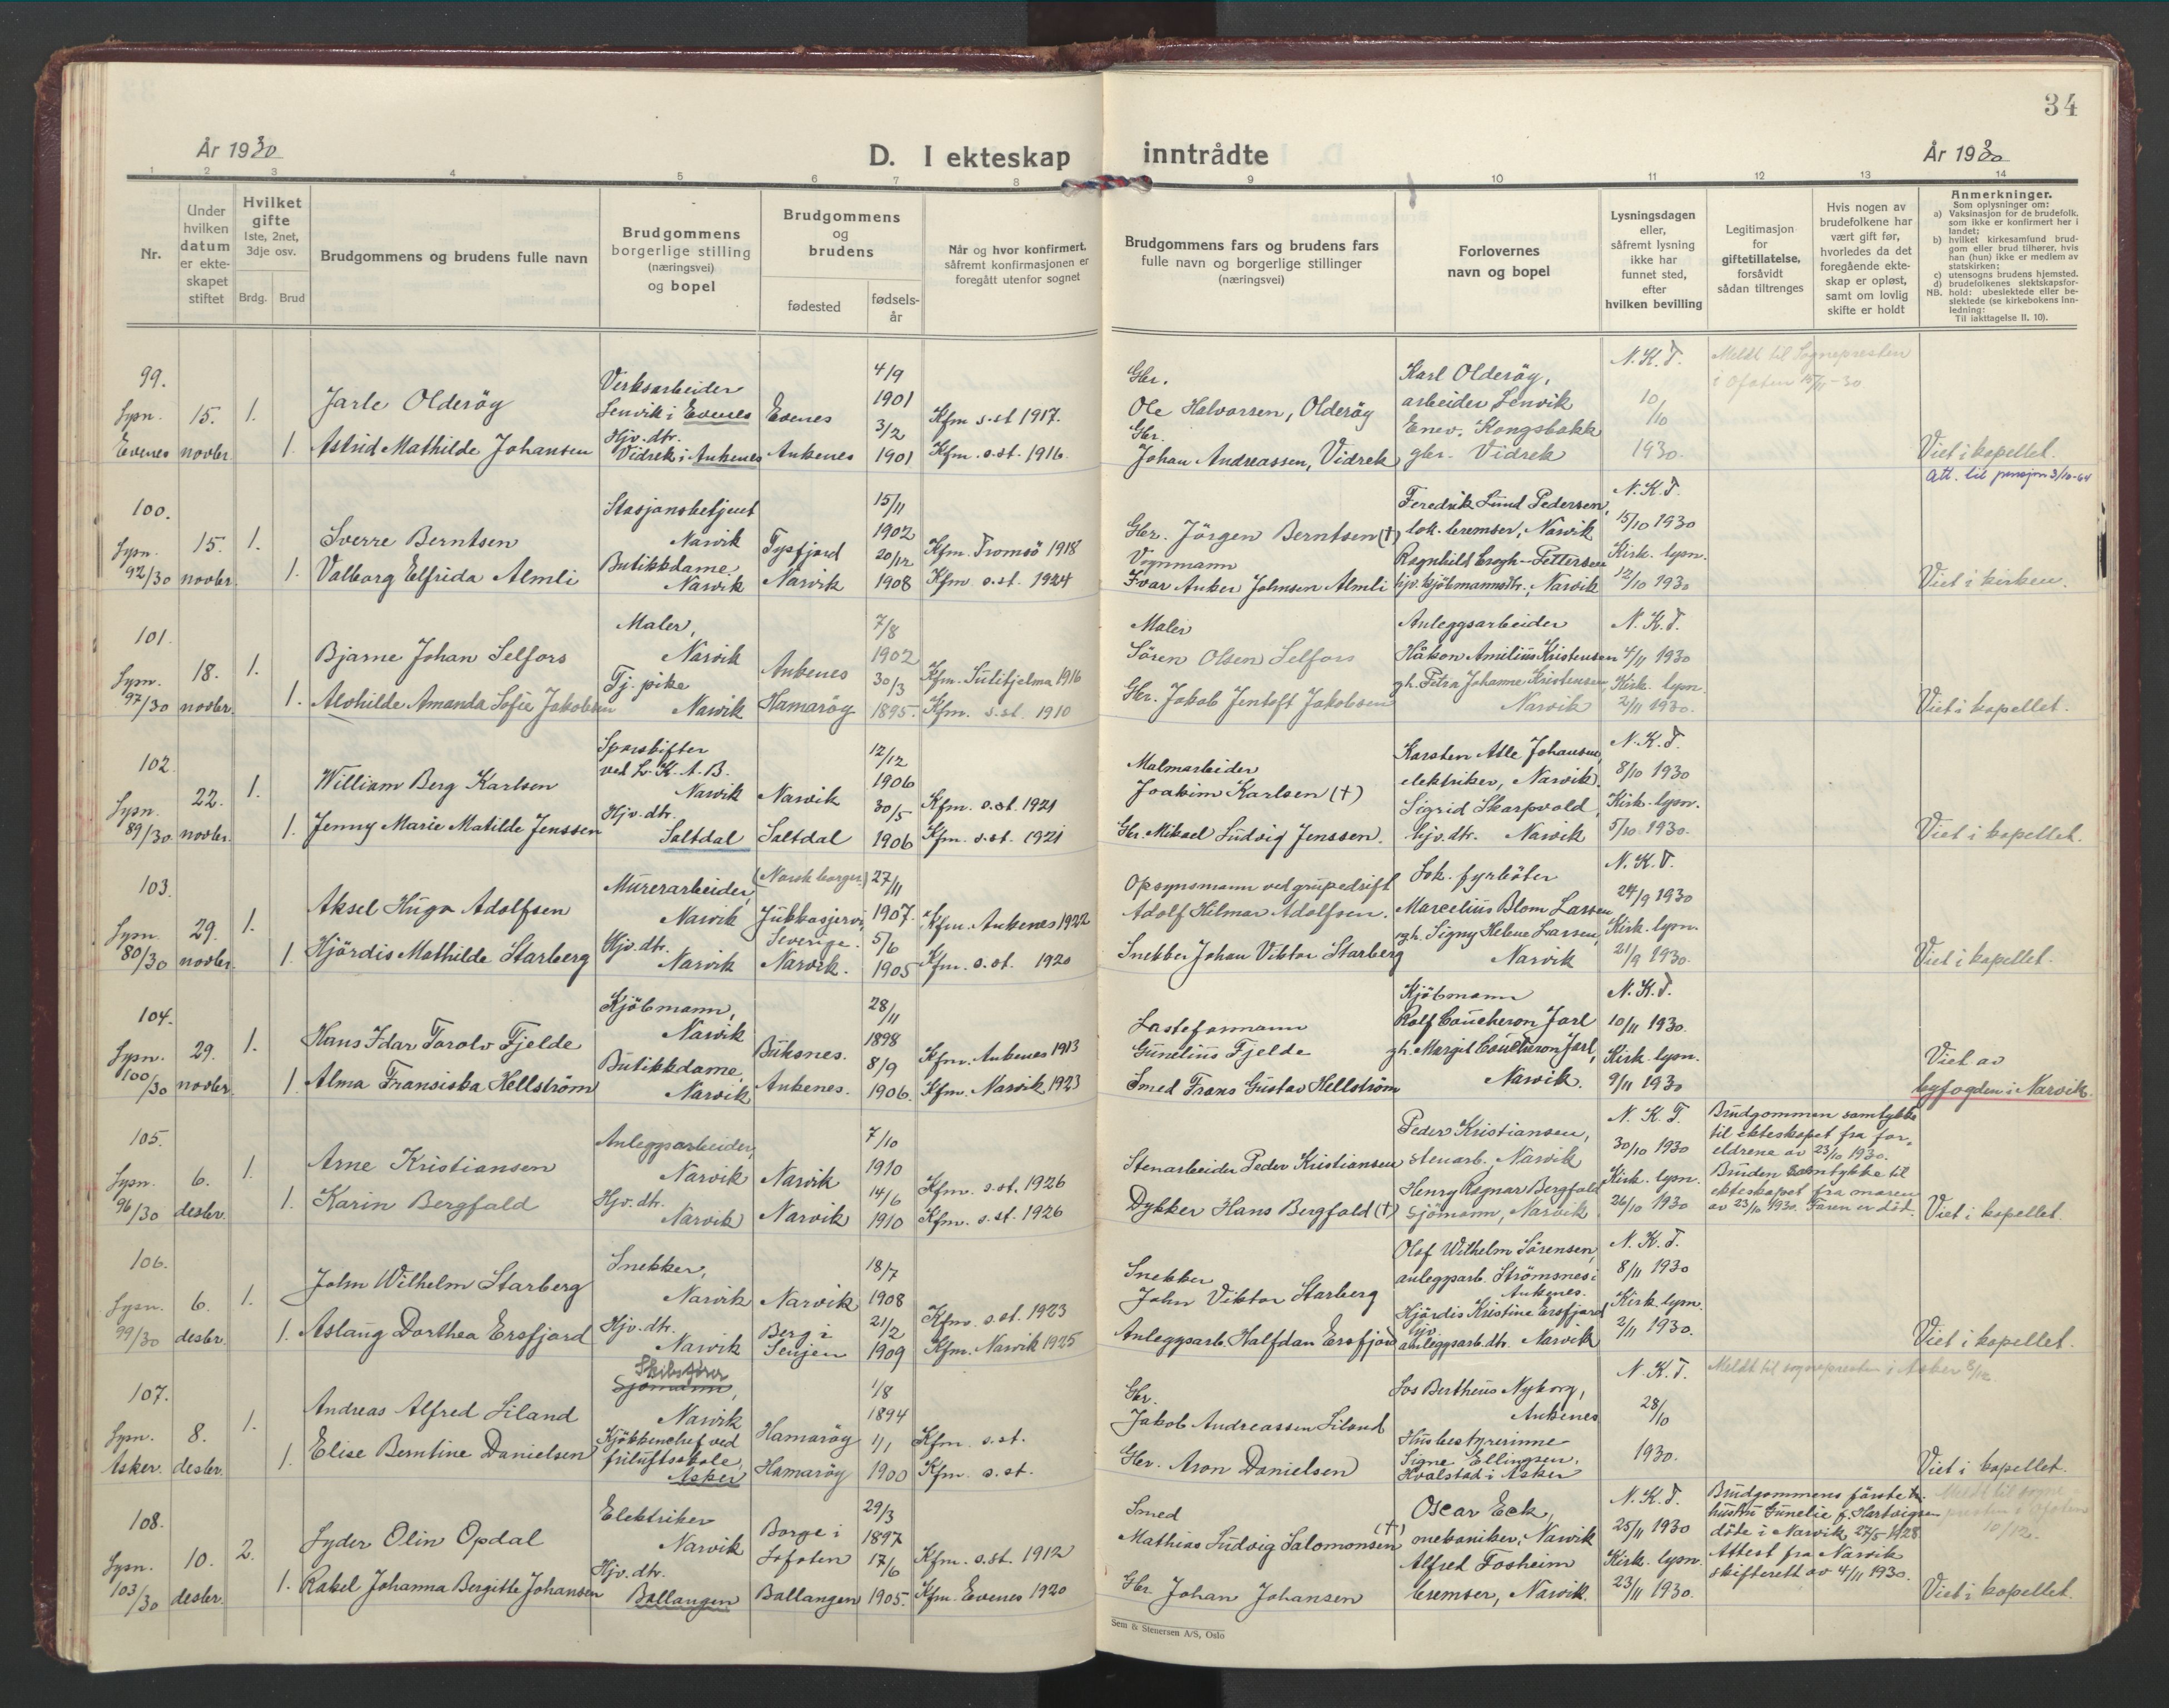 34
År 1930
D. I ekteskap inntrådte
År 1930
1 2 3 4 5 6 7 8 9 10 11 12 13 14
Nr.
Under
hvilken
datum
er ekte-
skapet
stiftet
Hvilket
gifte
1ste, 2net,
3dje osv.
Brdg. Brud
Brudgommens og brudens fulle navn
Brudgommens
borgerlige stilling
(næringsvei)
og bopel
Brudgommens
og
brudens
fødested
fødsels-
år
Når og hvor konfirmert.
såfremt konfirmasjonen er
foregått utenfor sognet
Brudgommens fars og brudens fars
fulle navn og borgerlige stillinger
(næringsvei)
Forlovernes
navn og bopel
Lysningsdagen
eller,
såfremt lysning
ikke har
funnet sted,
efter
hvilken bevilling
Legitimasjon
for
giftetillatelse,
forsåvidt
sådan tiltrenges
Hvis nogen av
brudefolkene har
vært gift før,
hvorledes da det
foregående ekte-
skap er opløst,
samt om lovlig
skifte er holdt
Anmerkninger.
Som oplysninger om:
a) Vaksinasjon for de brudefolk,
som ikke er konfirmert her i
landet;
b) hvilket kirkesamfund brud-
gom eller brud tilhører, hvis
han (hun) ikke er medlem av
statskirken;
c) utensogns brudens hjemsted.
d) brudefolkenes slektskapsfor-
hold: ubeslektede eller be-
slektede (se kirkebokens inn-
ledning:
NB.
Til iakttagelse II, 10).
99.
Lysn.
Evenes
15.
novbr.
1.
1.
Jarle Olderöy
Astrid Mathilde Johansen
Verksarbeider
Lenvik i Evenes
Hjv. dtr.
Vidrek i Ankenes
Evenes
Ankenes
4/9
1901
3/2
1901
Kfm. s. st. 1917.
Kfm. s. st. 1916.
Gbr.
Ole Halvorsen, Olderöy
Gbr.
Johan Andreassen, Vidrek
Karl Olderöy,
arbeider Lenvik
Enev. Kongsbakk
gbr. Vidrek
N. K. T.
10/10
1930.
Meldt til Sognepresten
i Ofoten 15/11-30
Viet i kapellet.
Att. til pensjon 3/10-64
100.
Lysn.
92/30
15.
novbr.
1.
1.
Sverre Berntsen
Valborg Elfrida Almli
Stasjonsbetjent
Narvik
Butikkdame
Narvik
Tysfjord
Narvik
15/11
1902
20/12
1908
Kfm. Tromsö 1918
Kfm. s. st. 1924
Gbr. Jörgen Berntsen (†)
Vognmann
Ivar Anker Johnsen Almli
Feredrik Lund Pedersen,
lok. bremser, Narvik
Ragnhild Krogh-Pettersen
hjv. kjöbmannsdtr., Narvik
N. K. T.
15/10 1930
Kirk. lysn.
12/10 1930
Viet i kirken.
101.
Lysn.
97/30
18.
novbr.
1.
1.
Bjarne Johan Selfors
Alvhilde Amanda Sofie Jakobsen
Maler,
Narvik
Tj. pike
Narvik
Ankenes
Hamaröy
7/8
1902
30/3
1895.
Kfm. Sulitjelma 1916
Kfm. s. st. 1910
Maler
Sören Olsen Selfors
Gbr. Jakob Jentoft Jakobsen
Anleggsarbeider
Håkon Amilius Kristensen
gh. Petra Johanne Kristensen,
Narvik
N. K. T.
4/11 1930
Kirk. lysn.
2/11 1930.
Viet i kapellet.
102.
Lysn.
89/30
22.
novbr.
1.
1.
William Berg Karlsen
Jenny Marie Matilde Jenssen
Sporskifter
ved L. K. A. B.
Narvik
Hjv. dtr.
Saltdal
Narvik
Saltdal
12/12
1906
30/5
1906
Kfm. s. st. 1921
Kfm. s. st. 1921
Malmarbeider
Joakim Karlsen (†)
Gbr. Mikael Ludvig Jenssen.
Karsten Atle Johansen,
elektriker, Narvik.
Sigrid Skarpvold,
hjv. dtr. Narvik
N. K. T.
8/10 1930
Kirk. lysn.
5/10 1930.
Viet i kapellet.
103.
Lysn.
80/30
29.
novbr.
1.
1.
Aksel Hugo Adolfsen
Hjördis Mathilde Starberg
Murerarbeider,
Narvik
Hjv. dtr.
Narvik
(Norsk borger.)
Jukkasjervi,
Sverige.
Narvik.
27/11
1907.
5/6
1905
Kfm. Ankenes 1922
Kfm. s. st. 1920
Opsynsmann ved grupedrift
Adolf Hilmar Adolfsen.
Snekker Johan Viktor Starberg
Lok. fyrböter
Marcelius Blom Larsen
gh. Signy Helene Larsen,
Narvik
N. K. T.
24/9 1930
Kirk. lysn.
21/9 1930.
Viet i kapellet.
104.
Lysn.
100/30
29.
novbr.
1.
1.
Hans Idar Torolv Fjelde
Alma Fransiska Hellström
Kjöbmann,
Narvik
Butikkdame,
Narvik
Buksnes.
Ankenes.
28/11
1898
8/9
1906.
Kfm. Ankenes 1913
Kfm. Narvik 1923
Lasteformann
Gunelius Fjelde
Smed Frans Gustav Hellström
Kjöbmann
Rolf Coucheron Jarl
gh. Margit Coucheron Jarl,
Narvik.
N. K. T.
10/11 1930.
Kirk. lysn.
9/11 1930
Viet av
byfogden i Narvik.
105.
Lysn.
96/30
6.
desbr.
1.
1.
Arne Kristiansen
Karin Bergfald
Anleggsarbeider,
Narvik
Hjv. dtr.
Narvik
Narvik
Narvik
7/10
1910
14/6
1910
Kfm. s. st. 1926
Kfm. s. st. 1926
Stenarbeider Peder Kristiansen
Dykker Hans Bergfald (†)
Peder Kristiansen,
stenarb. Narvik
Henry Ragnar Bergfald
Sjömann, Narvik
N. K. T.
30/10 1930
Kirk. lysn.
26/10 1930
Brudgommen samtykke
til ekteskapet fra for-
eldrene av 23/10 1930.
Bruden samtykke til
ekteskapet fra moren
av 23/10 1930. Faren er död.
Viet i kapellet.
106.
Lysn.
99/30
6.
desbr.
1.
1.
John Wilhelm Starberg
Aslaug Dorthea Ersfjord
Snekker,
Narvik
Hjv. dtr.
Narvik
Narvik
Berg i
Senjen
18/7
1908
21/2
1909
Kfm. s. st. 1923
Kfm. Narvik 1925
Snekker
John Viktor Starberg
Anleggsarb. Halfdan Ersfjord
Olaf Wilhelm Sörensen,
anleggsarb. Strömsnes i
Ankenes.
Hjördis Kristine Ersfjord
hjv.
anleggsarb. dtr. Narvik
N. K. T.
8/11 1930
Kirk. lysn.
2/11 1930.
Viet i kapellet.
107.
Lysn.
Asker.
8.
desbr.
1.
1.
Andreas Alfred Liland
Elise Berntine Danielsen
Skibsfører
Sjömann,
Narvik
Kjökkenchef ved
friluftsskole,
Asker
Hamaröy
Hamaröy
1/8
1894
1/1
1900
Kfm. s. st.
Kfm. s. st.
Gbr.
Jakob Andreassen Liland
Gbr. Aron Danielsen
Los Bertheus Nyborg,
Ankenes
Husbestyrerinne
Signe Ellingsen,
Hvalstad i Asker
N. K. T.
28/10
1930.
Meldt til sognepresten i Asker 8/12
Viet i kapellet.
108.
Lysn.
103/30
10.
desbr.
2.
1.
Lyder Olin Opdal
Rakel Johanna Bergitte Johansen
Elektriker
Narvik
Hjv. dtr.
Ballangen
Borge i
Lofoten
Ballangen
29/3
1897
17/6
1905.
Kfm. s. st. 1912
Kfm. Evenes 1920
Smed
Mathias Ludvig Salomonsen (†)
Gbr. Johan Johansen
Oscar Eck,
mekaniker, Narvik
Alfred Fosheim
bremser, Narvik.
N. K. T.
25/11 1930
Kirk. lysn.
23/11 1930.
Brudgommens förste
hustru Gunelie f. Hartvigsen
döde i Narvik 27/5 1928
Attest fra Narvik
skifterett av 4/11 1930.
Meldt til sogne-
presten i Ofoten
10/12.
Viet i kapellet.
Sem & Stenersen A/S, Oslo